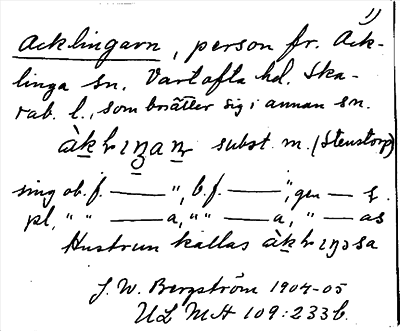 1)
Acklingarn, person fr. Ack-
linga sn. Vartofta hd. Ska-
rab. l., som bosätter sig i annan sn.
subst. m. (Stenstorp)
sing. ob. f. —— ", b. f. —— ", gen — s.
pl. " " —— a, " " —— a, " — as
Hustrun kallas
J. W. Bergström 1904-05
ULMA 109:233b.